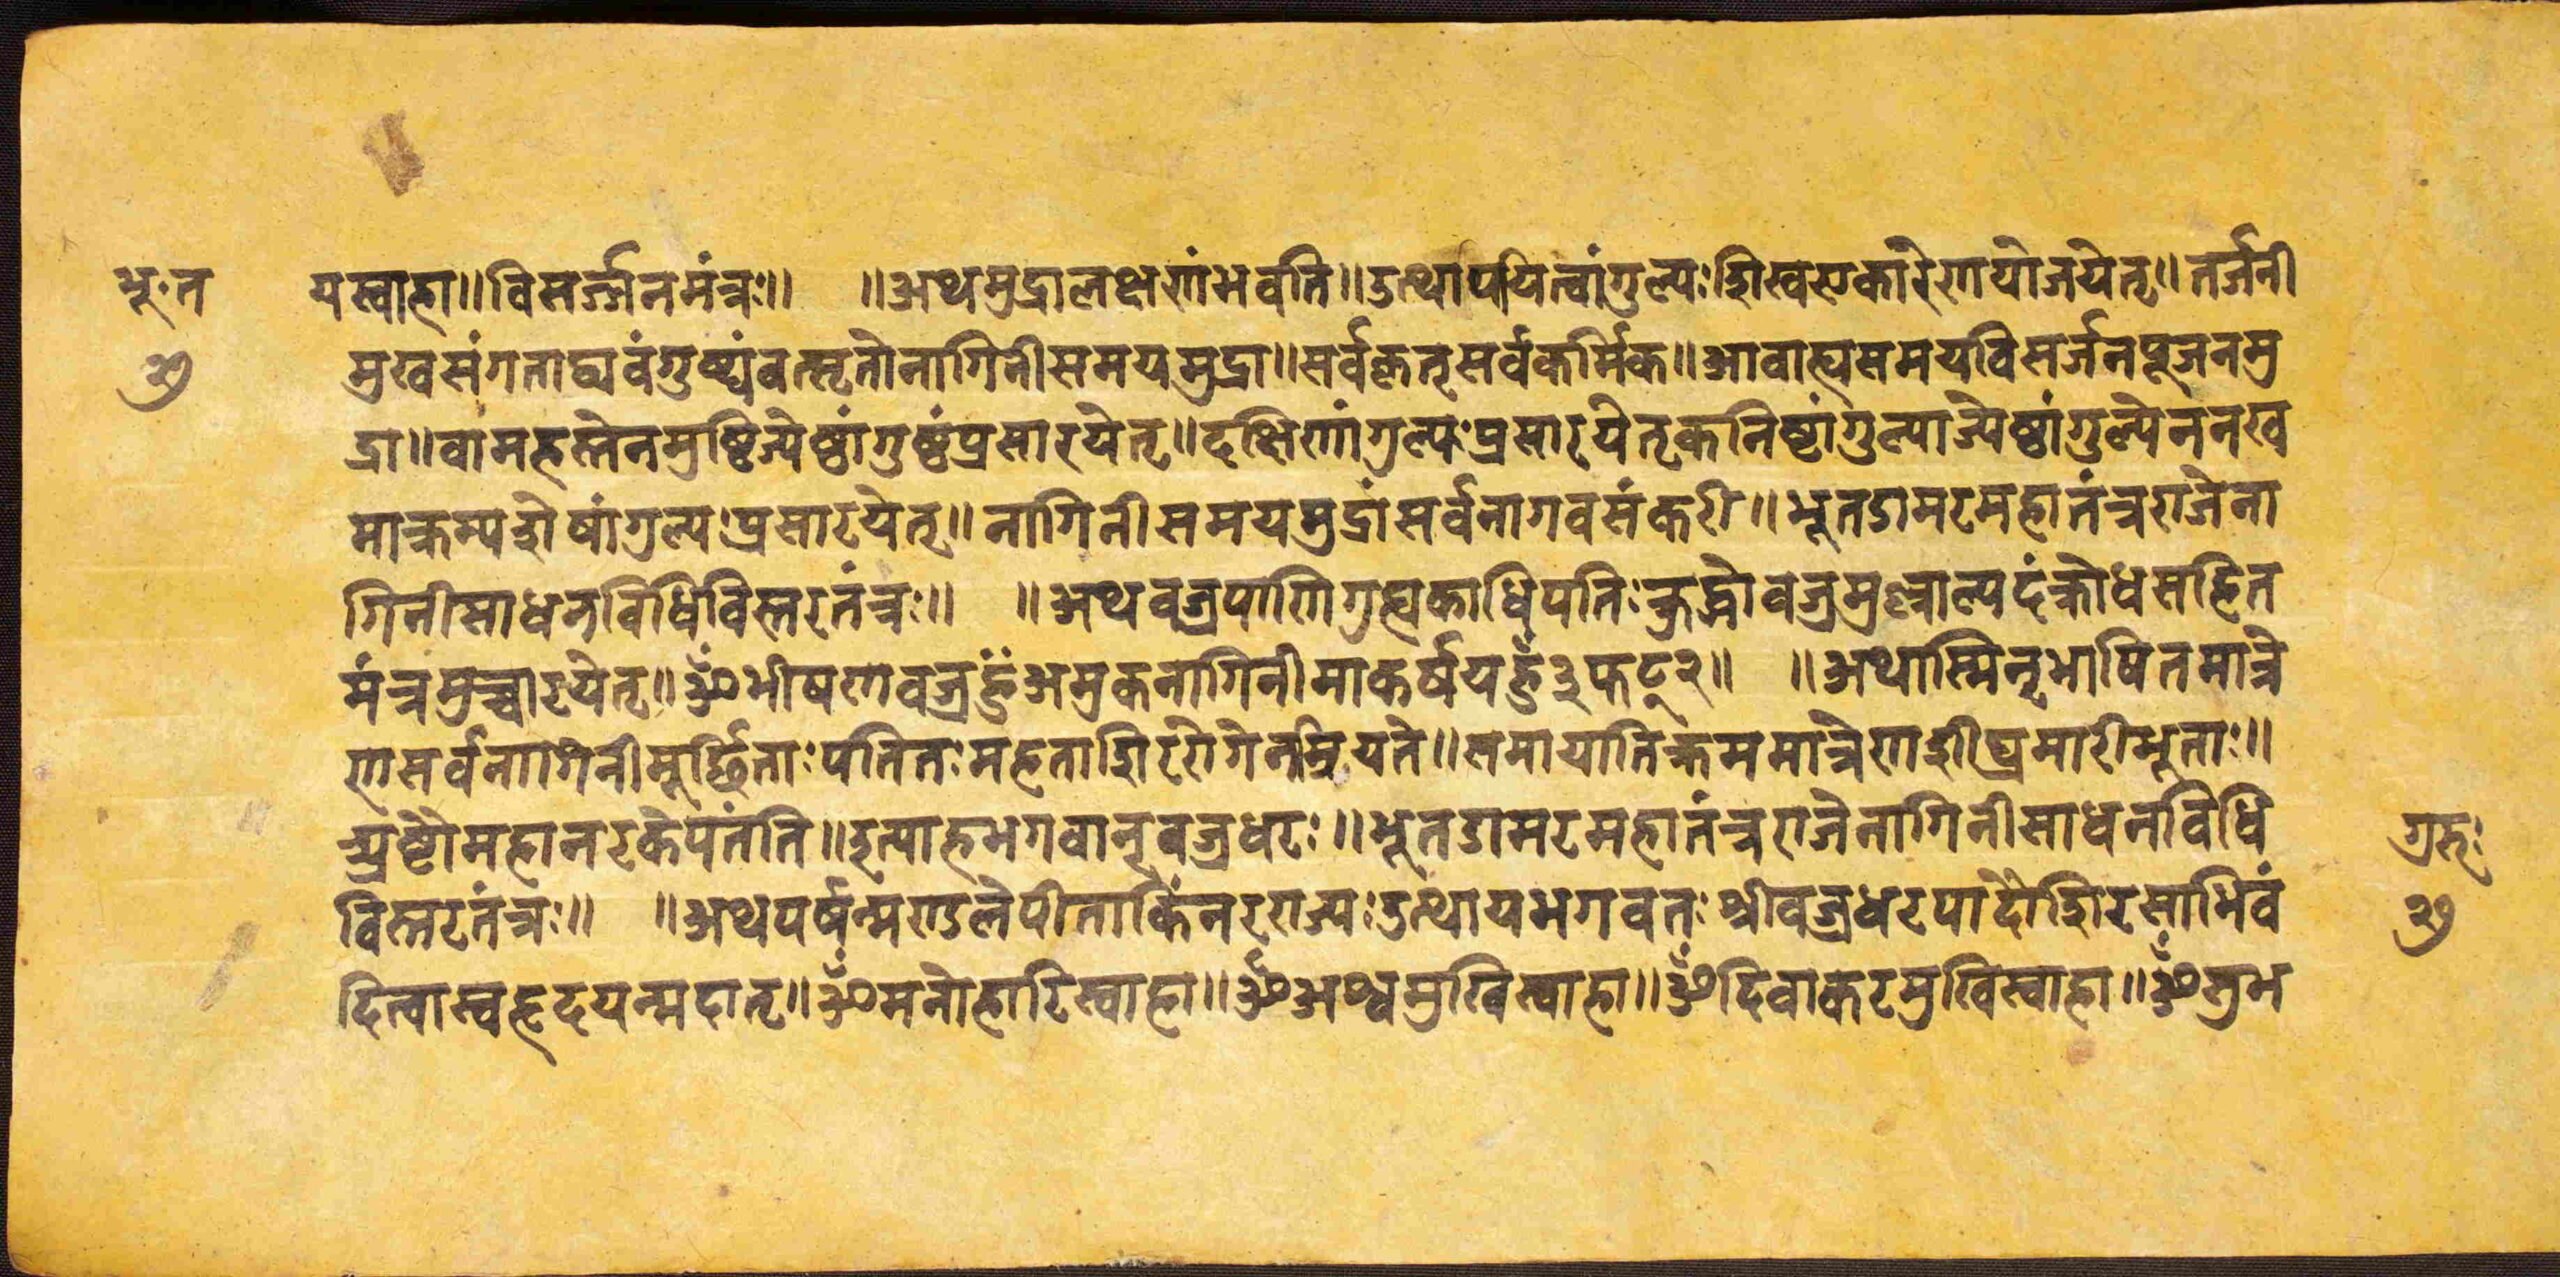 भू॰त
२७
यस्वाहा॥विसर्ज्जनमंत्रः॥ ॥अथमुद्रालक्षणंभवति॥उत्थापयित्वांगुल्यःशिखरकारेणयोजयेत्॥तर्जनी
मुखसंगता वत्सृतोनागिनीसमयमुद्रा॥सर्वकृत्सर्वकर्मिक॥आवाह्यसमयविसर्जनपूजनमु
द्रा॥वामहस्तेनमुष्टिज्येष्ठांगुष्ठंप्रसारयेत्॥दक्षिणांगुल्यःप्रसारयेत्कनिष्टांगुल्याज्येष्ठांगुल्येननख
माक्रम्यशेषांगुल्यःप्रसारयेत्॥नागिनीसमयमुद्रांसर्वनागवसंकरी॥भूतडामरमहातंत्रराजेना
गिनीसाधनविधिविस्तरतंत्रः॥ ॥अथवज्रपाणिगुह्यकाधिपतिःक्रुद्धोवज्रमुल्लाल्यदंक्रोधसहित
मंत्रमुच्चारयेत्॥ॐभीषणवज्रहूंअमुकनागिनीमाकर्षयहूं३फट्२॥ ॥अथास्मिन्भाषितमात्रे
णसर्वनागिनीमूर्छिताःपतितःमहताशिररोगेनम्रियते॥समायातिक्रममात्रेणशीघ्रमारीभूताः॥
अष्टौमहानरकेपतंति॥इत्याहभगवान्वज्रधरः॥भूतडामरमहातंत्रराजेनागिनीसाधनविधि
विस्तरतंत्रः॥ ॥अथपर्षन्मण्डलेपीताकिंनरराज्यःउत्थायभगवतःश्रीवज्रधरपादौशिरसाभिवं
दित्वास्वहृदयन्मदात्॥ॐमनोहारिस्वाहा॥ॐअश्वमुखिस्वाहा॥ॐदिवाकरमुखिस्वाहा॥ॐसुभ
ग्रहः
२७